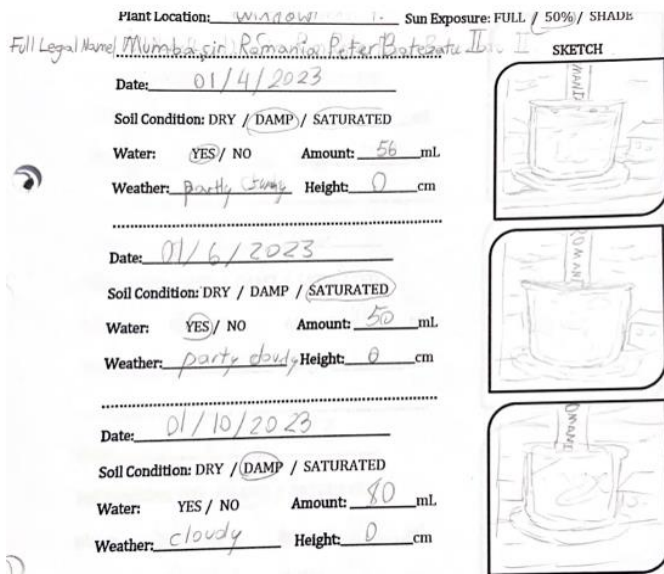 Plant Location: window Sun Exposure: FULL / 50% / SHADE
Full Legal Name Mumbasir Romania Peter Botezatu II
SKETCH
Date: 01/4/2023
Soil Condition: DRY / DAMP / SATURATED
Water: YES / NO Amount: 56 mL
Weather: partly Height: 0 cm
MANI
Date: 01/6/2023
Soil Condition: DRY / DAMP / SATURATED
Water: YES / NO Amount: 50 mL
Weather: party cloudy Height: 0 cm
ROMANI
Date: 01/10/2023
Soil Condition: DRY / DAMP / SATURATED
Water: YES / NO Amount: 80 mL
Weather: cloudy Height: 0 cm
OMANI